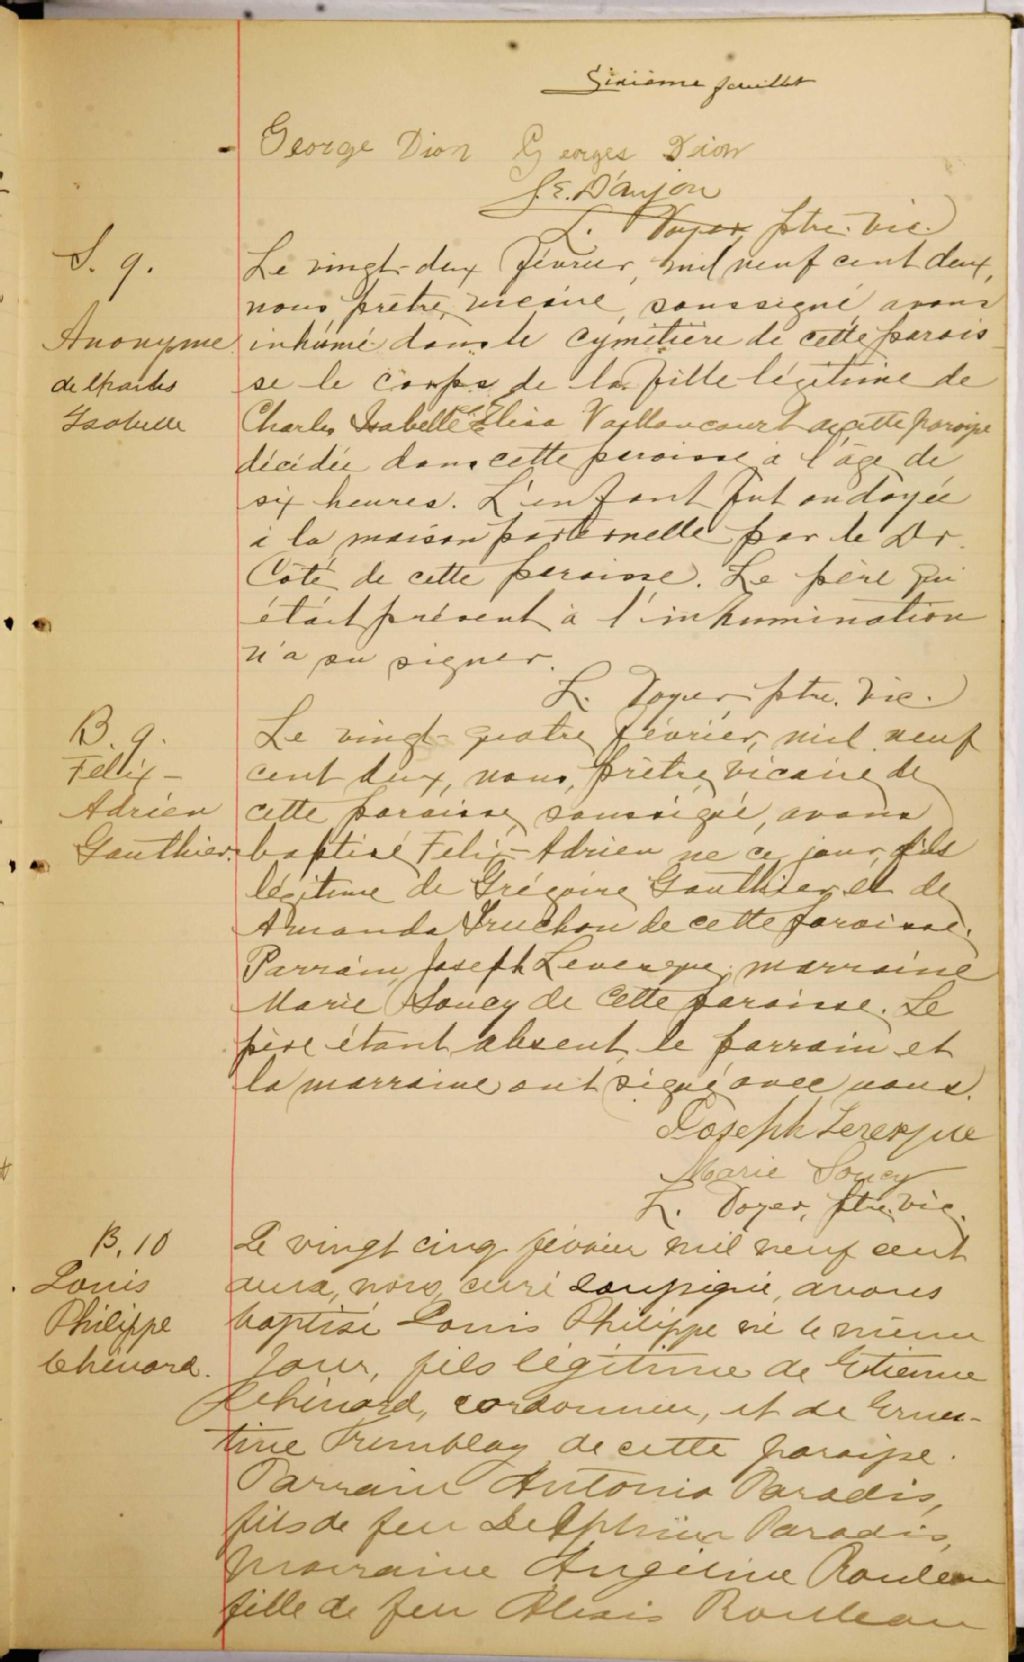 Sixième feuillet
George Dion Georges Dion
J.E. D'anjou
L. Voyer, ptre. vic.
S. 9.
Anonyme
de Charles
Isabelle
Le vingt-deux février, mil neuf cent deux,
nous prêtre, vicaire, soussigné, avons
inhumé dans le cymétière de cette parois
se le corps de la fille légitime de
Charles Isabelle et Elisa Vaillancourt de cette paroisse
décédée dans cette paroisse à l'âge de
six heures. L'enfant fut ondoyée
à la maison paternelle par le Dr.
Côté de cette paroisse. Le père qui
était présent à l'inhumination
n'a su signer.
L. Voyer, ptre. vic.
B. 9.
Félix-
Adrien
Gauthier.
Le vingt-quatre février, mil neuf
cent deux, nous, prêtre, vicaire de
cette paroisse, soussigné, avons
baptisé Felix-Adrien ne ce jour, fils
légitime de Grégoire Gauthier et de
Amanda Truchon de cette paroisse.
Parrain, Joseph Levesque; marraine
Marie Soucy de cette paroisse. Le
père étant absent, le parrain et
la marraine ont signé avec nous.
Joseph Levesque
Marie Soucy
L. Voyer, ptre. vic.
B. 10
Louis
Philippe
Chénard.
Le vingt cinq février mil neuf cent
deux, nous, curé soussigné, avons
baptisé Louis Philippe né le même
jour, fils légitime de Etienne
Chénard, cordonnier, et de Ernes-
tine Tremblay de cette paroisse.
Parrain Antonio Paradis,
fils de feu Delphius Paradis,
marraine Angéline Rouleau
fille de feu Alexis Rouleau